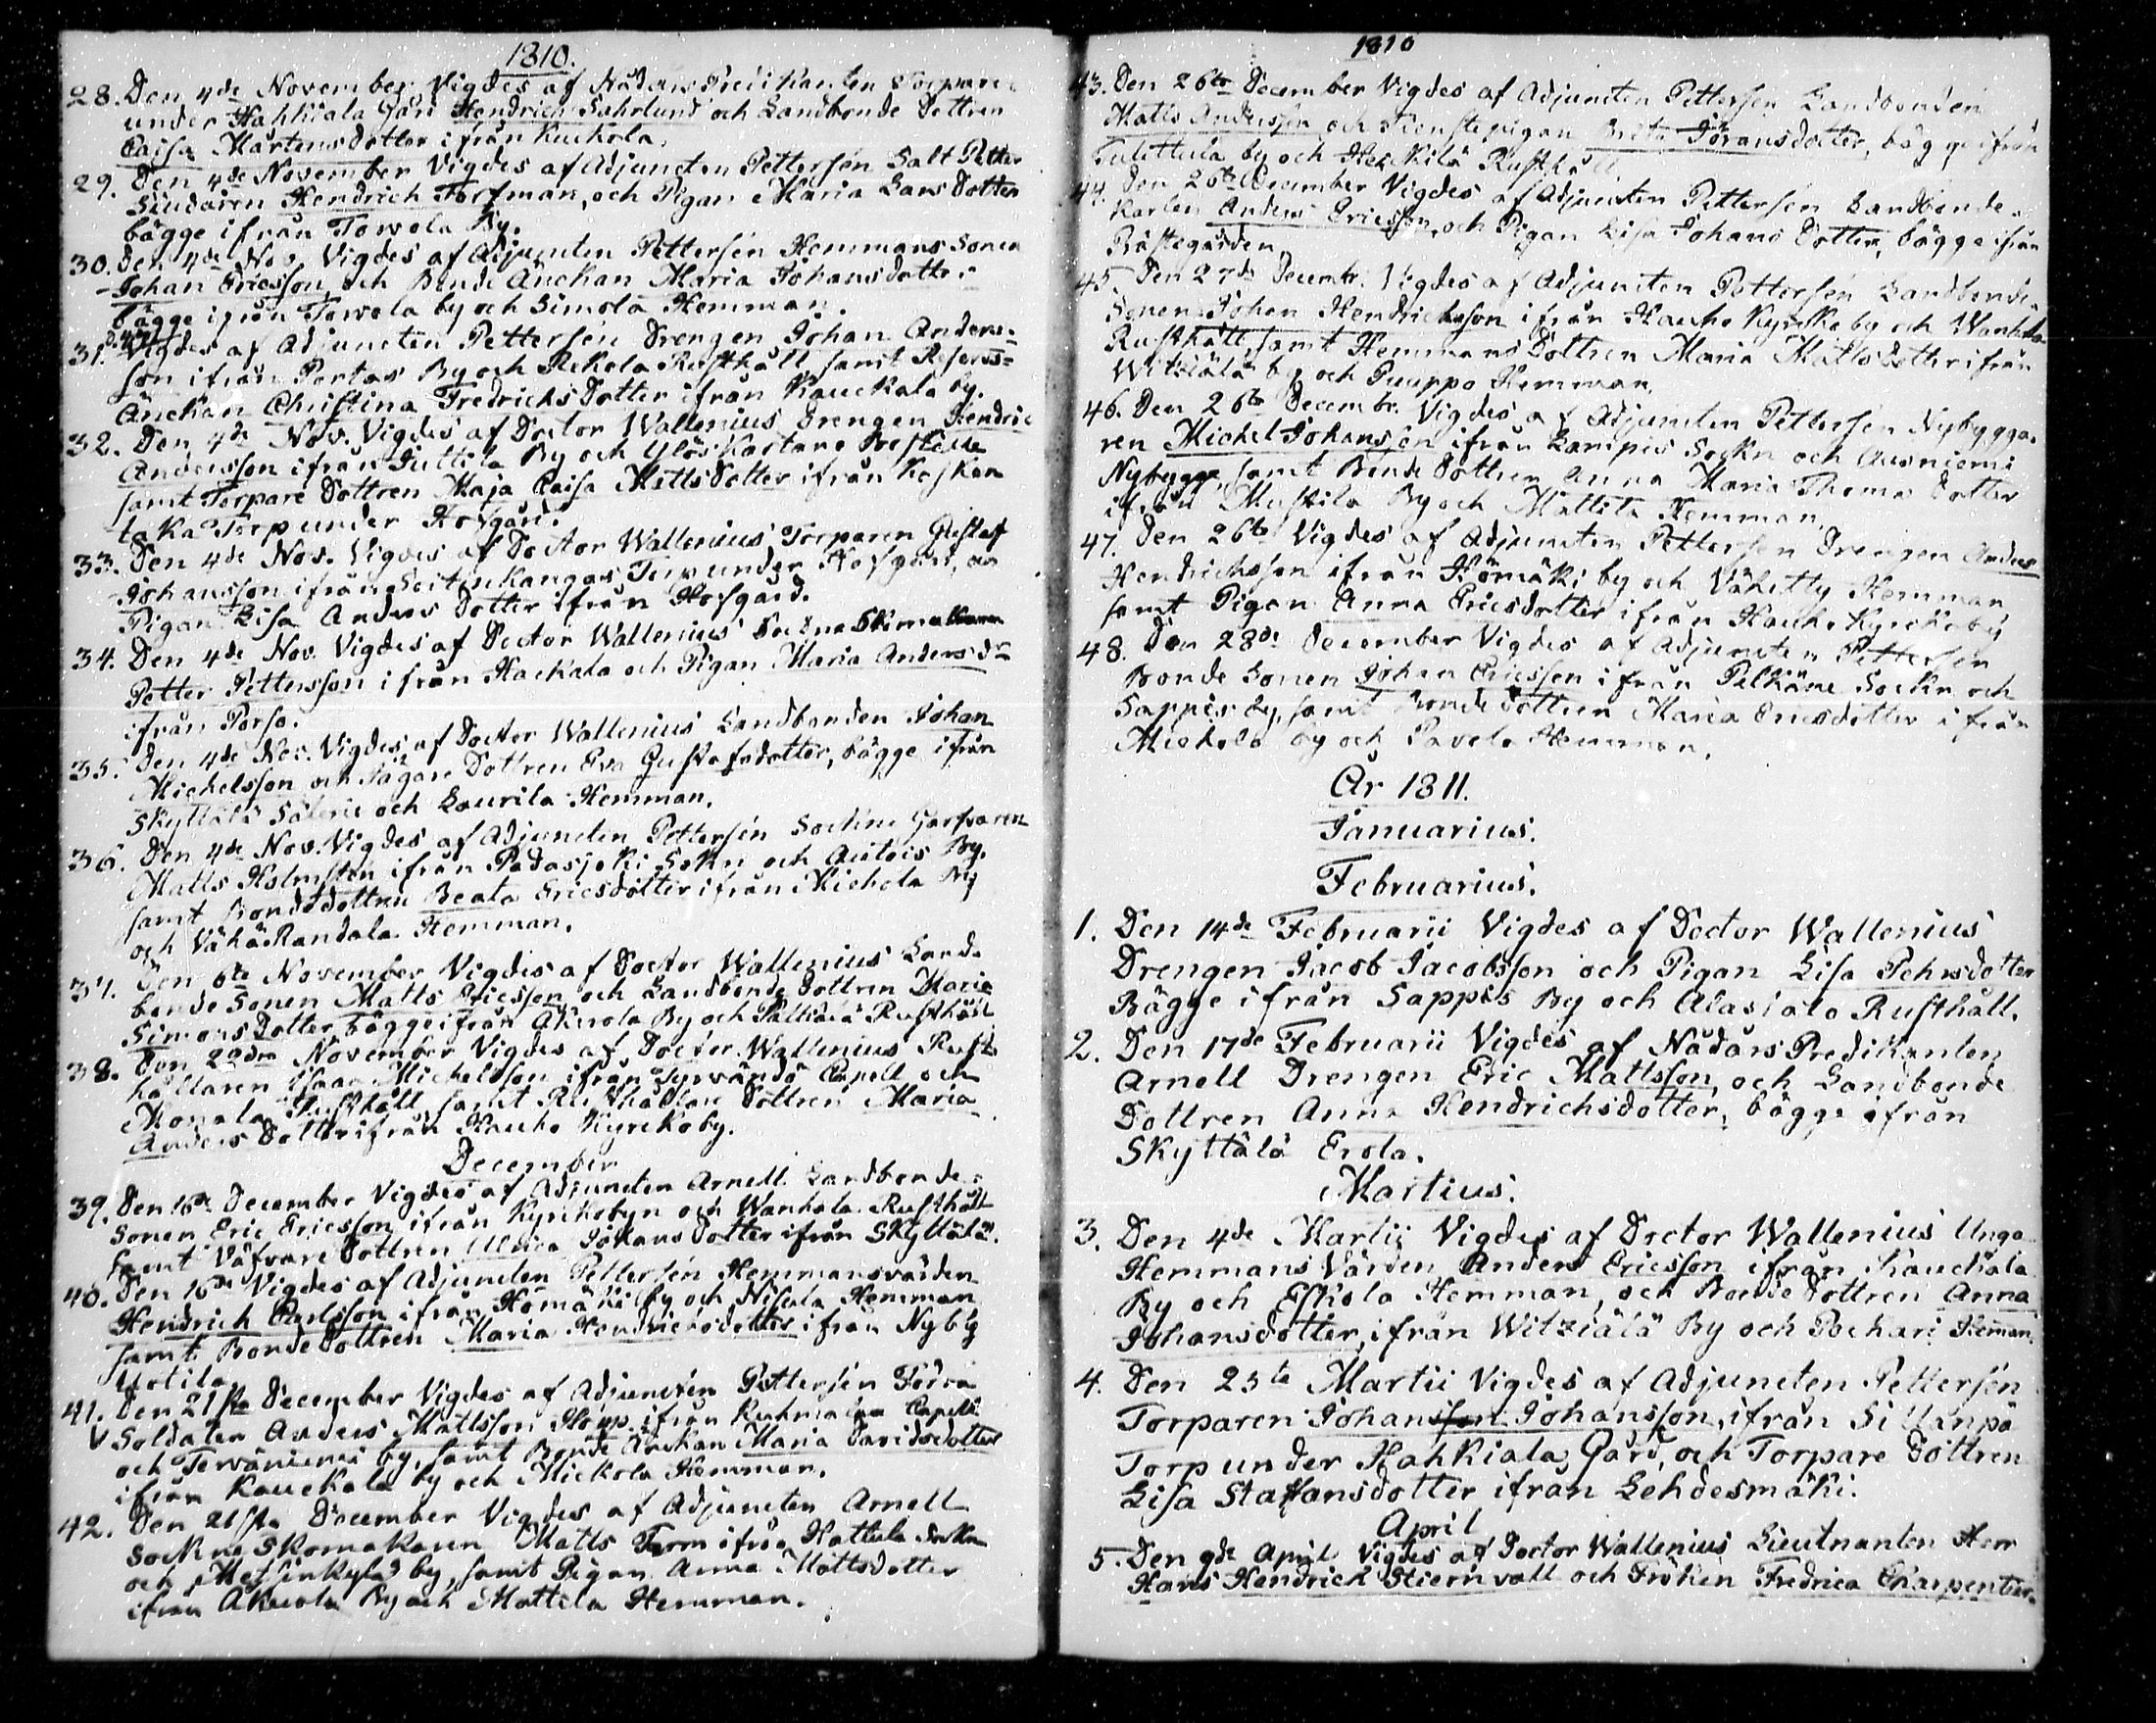 1810.
28. Den 4de November Vigdes af Nådårs Predikanten Torparen
under Hahkiala Gård Hendrich Sahrlund och Landbonde Dottren
Caisa Mårtensdotter ifrån Kuckola.
29. Den 4de November Vigdes af Adjuncten Pettersén Salt Petter
Siudaren Hendrich Forsman, och Pigan Maria Lars Dotter
bägge ifrån Towola By.
30. Den 4de Nov. Vigdes af Adjuncten Pettersén Hemmans Sonen
Johan Ericsson, och Bonde Änckan Maria Johansdotter
bägge ifrån Towola by och Simola Hemman.
31. Vigdes af Adjuncten Pettersén Drengen Johan Anders-
son ifrån Portas By och Rekola Rusthåll, samt Reserfs-
Änckan Christina Fredrichs Dotter ifrån Kauckala by.
32. Den 4de Nov. Vigdes af Doctor Wallenius Drengen Hendric
Andersson ifrån Juttila By och Ylöskartano Boställe
samt Torpare Dottren Maja Caisa Matts Dotter ifrån Kosken
taka Torp under Hofgård.
33. Den 4de Nov. Vigdes af Doctor Wallenius Torparen Gustaf
Johansson ifrån Soitinkangas Torp under Hofgård, och
Pigan Lisa Anders Dotter ifrån Hofgård.
34. Den 4de Nov. Vigdes af Doctor Wallenius Sockne Skomakaren
Petter Pettersson ifrån Hackala och Pigan Maria Andersdr
ifrån Porso.
35. Den 4de Nov. Vigdes af Doctor Wallenius Landbonden Johan
Michelsson och Sågare Dottren Eva Gustafsdotter, bägge ifrån
Skyttälä Säterie och Laurila Hemman.
36. Den 4de Nov. Vigdes af Adjuncten Pettersén Sockne Garfvaren
Matts Holmstén ifrån Padasjoki Sokn och Autois By.
samt Bondedottren Beata Ericsdotter ifrån Michola By
och Vähä Randala Hemman.
37. Den 6te November Vigdes af Doctor Wallenius Land-
bonde Sonen Matts Ericsson, och Landbonde Dottren Maria
Simons Dotter, bägge ifrån Okerola By och Rusthåll
38. Den 22dra November Vigdes af Doctor Wallenius Rust-
hållaren Isaac Michelsson ifrån Syrvändö Capell och
Monala Rusthåll, samt Rusthållare Dottren Maria
Anders Dotter ifrån Hauho Kyrckoby.
December
39. Den 16de December Vigdes af Adjuncten Arnell Landbonde-
Sonen Eric Ericsson ifrån Kyrckobyn och Wanhala Rusthåll
samt Väfvare Dottren Ulrica Johans Dotter ifrån Skyttälä.
40. Den 16de Vigdes af Adjuncten Pettersén Hemmansvärden
Hendrich Carlsson ifrån Hömäki by och Nisula Hemman
samt Bonde Dottren Maria Hendrichsdotter ifrån Nyby
Uotila.
41. Den 21sta December Vigdes af Adjuncten Pettersén Förra
V Soldaten Anders Mattsson ifrån Kuhmalax Capell
och Terväniemi by, samt Bonde Änckan Maria Davidsdotter
ifrån Kauckala by och Mickola Hemman.
42. Den 21sta December Vigdes af Adjuncten Arnell
Sockne Skomakaren Matts Form ifrån Hattula Sockn
och Metsänkylä by, samt Pigan Anna Mattsdotter
ifrån Okerola By och Mattila Hemman.
1810
43. Den 26te December Vigdes af Adjuncten Pettersén Landbonden
Matts Andersson och Tienstepigan Brita Göransdotter, bägge ifrån
Tulettula by och Heickilä Rusthåll
44. Den 26te December Vigdes af Adjuncten Pettersén Landbonde-
Karlen Anders Ericsson, och Pigan Lisa Johans Dotter, bägge ifrån
Prästegården.
45. Den 27de Decembr. Vigdes af Adjuncten Pettersén Landbonde-
Sonen Johan Hendrichsson ifrån Hauho Kyrckoby och Wanhala
Rusthåll, samt Hemmans Dottren Maria Matts Dotter ifrån
Witziälä by och Puuppo Hemman.
46. Den 26te Decembr. Vigdes af Adjuncten Pettersén Nybygga-
ren Michel Johansson ifrån Lampis Sockn och Ausniemi
Nybygge, samt Bonde Dottren Anna Maria Thomæ Dotter
ifrån Mustila By och Mattila Hemman.
47. Den 26te Vigdes af Adjuncten Pettersén Drengen Anders
Hendrichsson ifrån Hömäki by och Vähetty Hemman,
samt Pigan Anna Ericsdotter ifrån Hauho Kyrckoby
48. Den 28de December Vigdes af Adjuncten Pettersén
Bonde Sonen Johan Ericsson ifrån Pelkäne Sockn och
Sappis by, samt Bonde Dottren Maria Ericsdotter ifrån
Mickola by och Pavola Hemman.
År 1811.
Januarius.
Februarius.
1. Den 14de Februarii Vigdes af Doctor Wallenius
Drengen Jacob Jacobsson och Pigan Lisa Pehrsdotter
Bägge ifrån Sappis By och Alasialo Rusthåll.
2. Den 17de Februarii Vigdes af Nådårs Predikanten
Arnell Drengen Eric Mattsson, och Landbonde
Dottren Anna Hendrichsdotter, bägge ifrån
Skyttälä Erola.
Martius.
3. Den 4de Martii Vigdes af Doctor Wallenius Unga
Hemmans Värden Anders Ericsson ifrån Kauckala
By och Eskola Hemman, och Bonde Dottren Anna
Johansdotter, ifrån Witziälä By och Pochari Hemman.
4. Den 25te Martii Vigdes af Adjuncten Pettersén
Torparen Johansson Johansson, ifrån Sillanpä
Torp under Hahkiala Gård, och Torpare Dottren
Lisa Staffansdotter ifrån Lehdesmäki.
April
5. Den 9de April Vigdes af Doctor Wallenius Lieutnanten Herr
Hans Hendrick Stiernvall och Fröken Fredrica Charpentier.